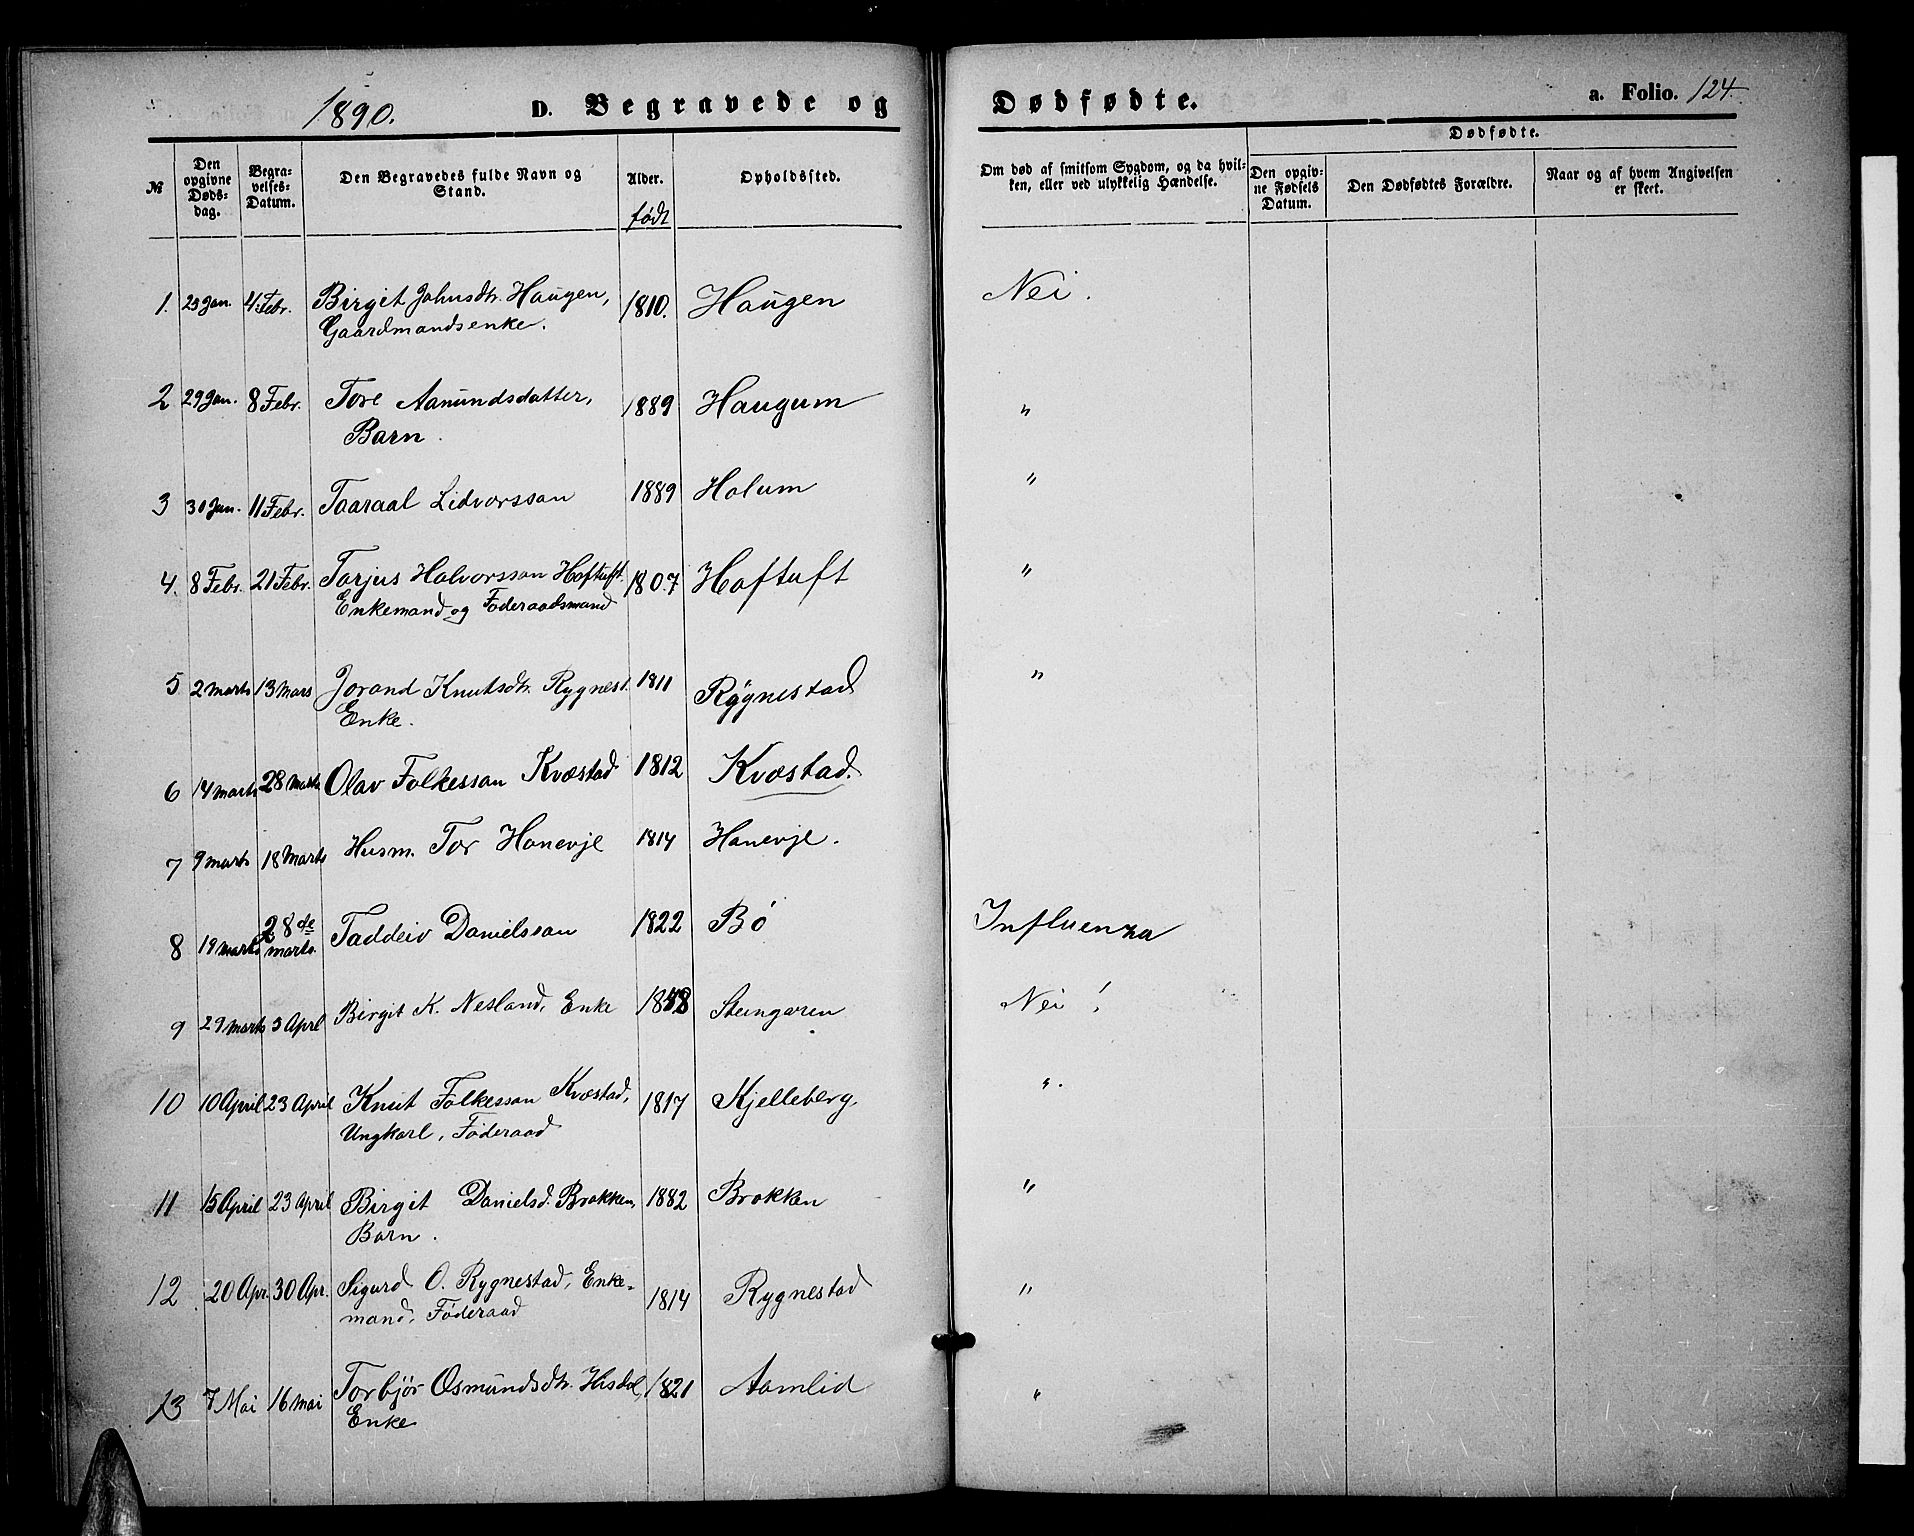 1890. D. Begravede og Dødfødte. a. Folio. 124.
№ Den opgivne Dødsdag. Begravelses-Datum. Den Begravedes fulde Navn og Stand. Alder. født Opholdssted. Om død af smitsom Sygdom, og da hvilken, eller ved ulykkelig Hændelse. Dødfødte. Den opgivne Fødsels Datum. Den Dødfødtes Forældre. Naar og af hvem Angivelsen er skeet.
1. 23 Jan. 4. Febr. Birgit Johnsdtr. Haugen, 1810. Haugen Nei.
Gaardmandsenke.
2 29 Jan. 8 Febr. Tore Aanundsdatter, 1889 Haugum "
Barn.
3 30 Jan. 11 Febr. Taaraal Lidvorsson 1889 Holum "
4. 8 Febr. 21 Febr. Tarjus Halvorsson Hoftuft. 1807 Hoftuft "
Enkemand og Føderaadsmand
5 2 Marts 13 Mars Jorand Knutsdtr. Rygnest. 1811 Rygnestad "
Enke.
6 14 marts 28 Marts Olav Folkesson Kvæstad 1812 Kvæstad.
7 9 marts 18 Marts Husm. Tor Honevje 1814 Honevje.
8 19 marts 28de marts. Taddeiv Danielsson 1822 Bø Influenza
9 29 Marts 3 Aprl Birgit K. Nesland, Enke Steingaren Nei!
10 10 April 23 April Knut Folkesson Kvæstad, 1817 Kjelleberg. ".
Ungkarl, Føderaad
11 15 April 23 April Birgit Danielsd. Brokken, 1882 Brokken "
Barn.
12 20 Apr. 30 Apr. Sigurd O. Rygnestad, Enke- 1814 Rygnestad "
mand, Føderaad
13 7 Mai 16 mai Torbjør Osmundsdtr. Hisdal, 1821 Aamlid "
Enke